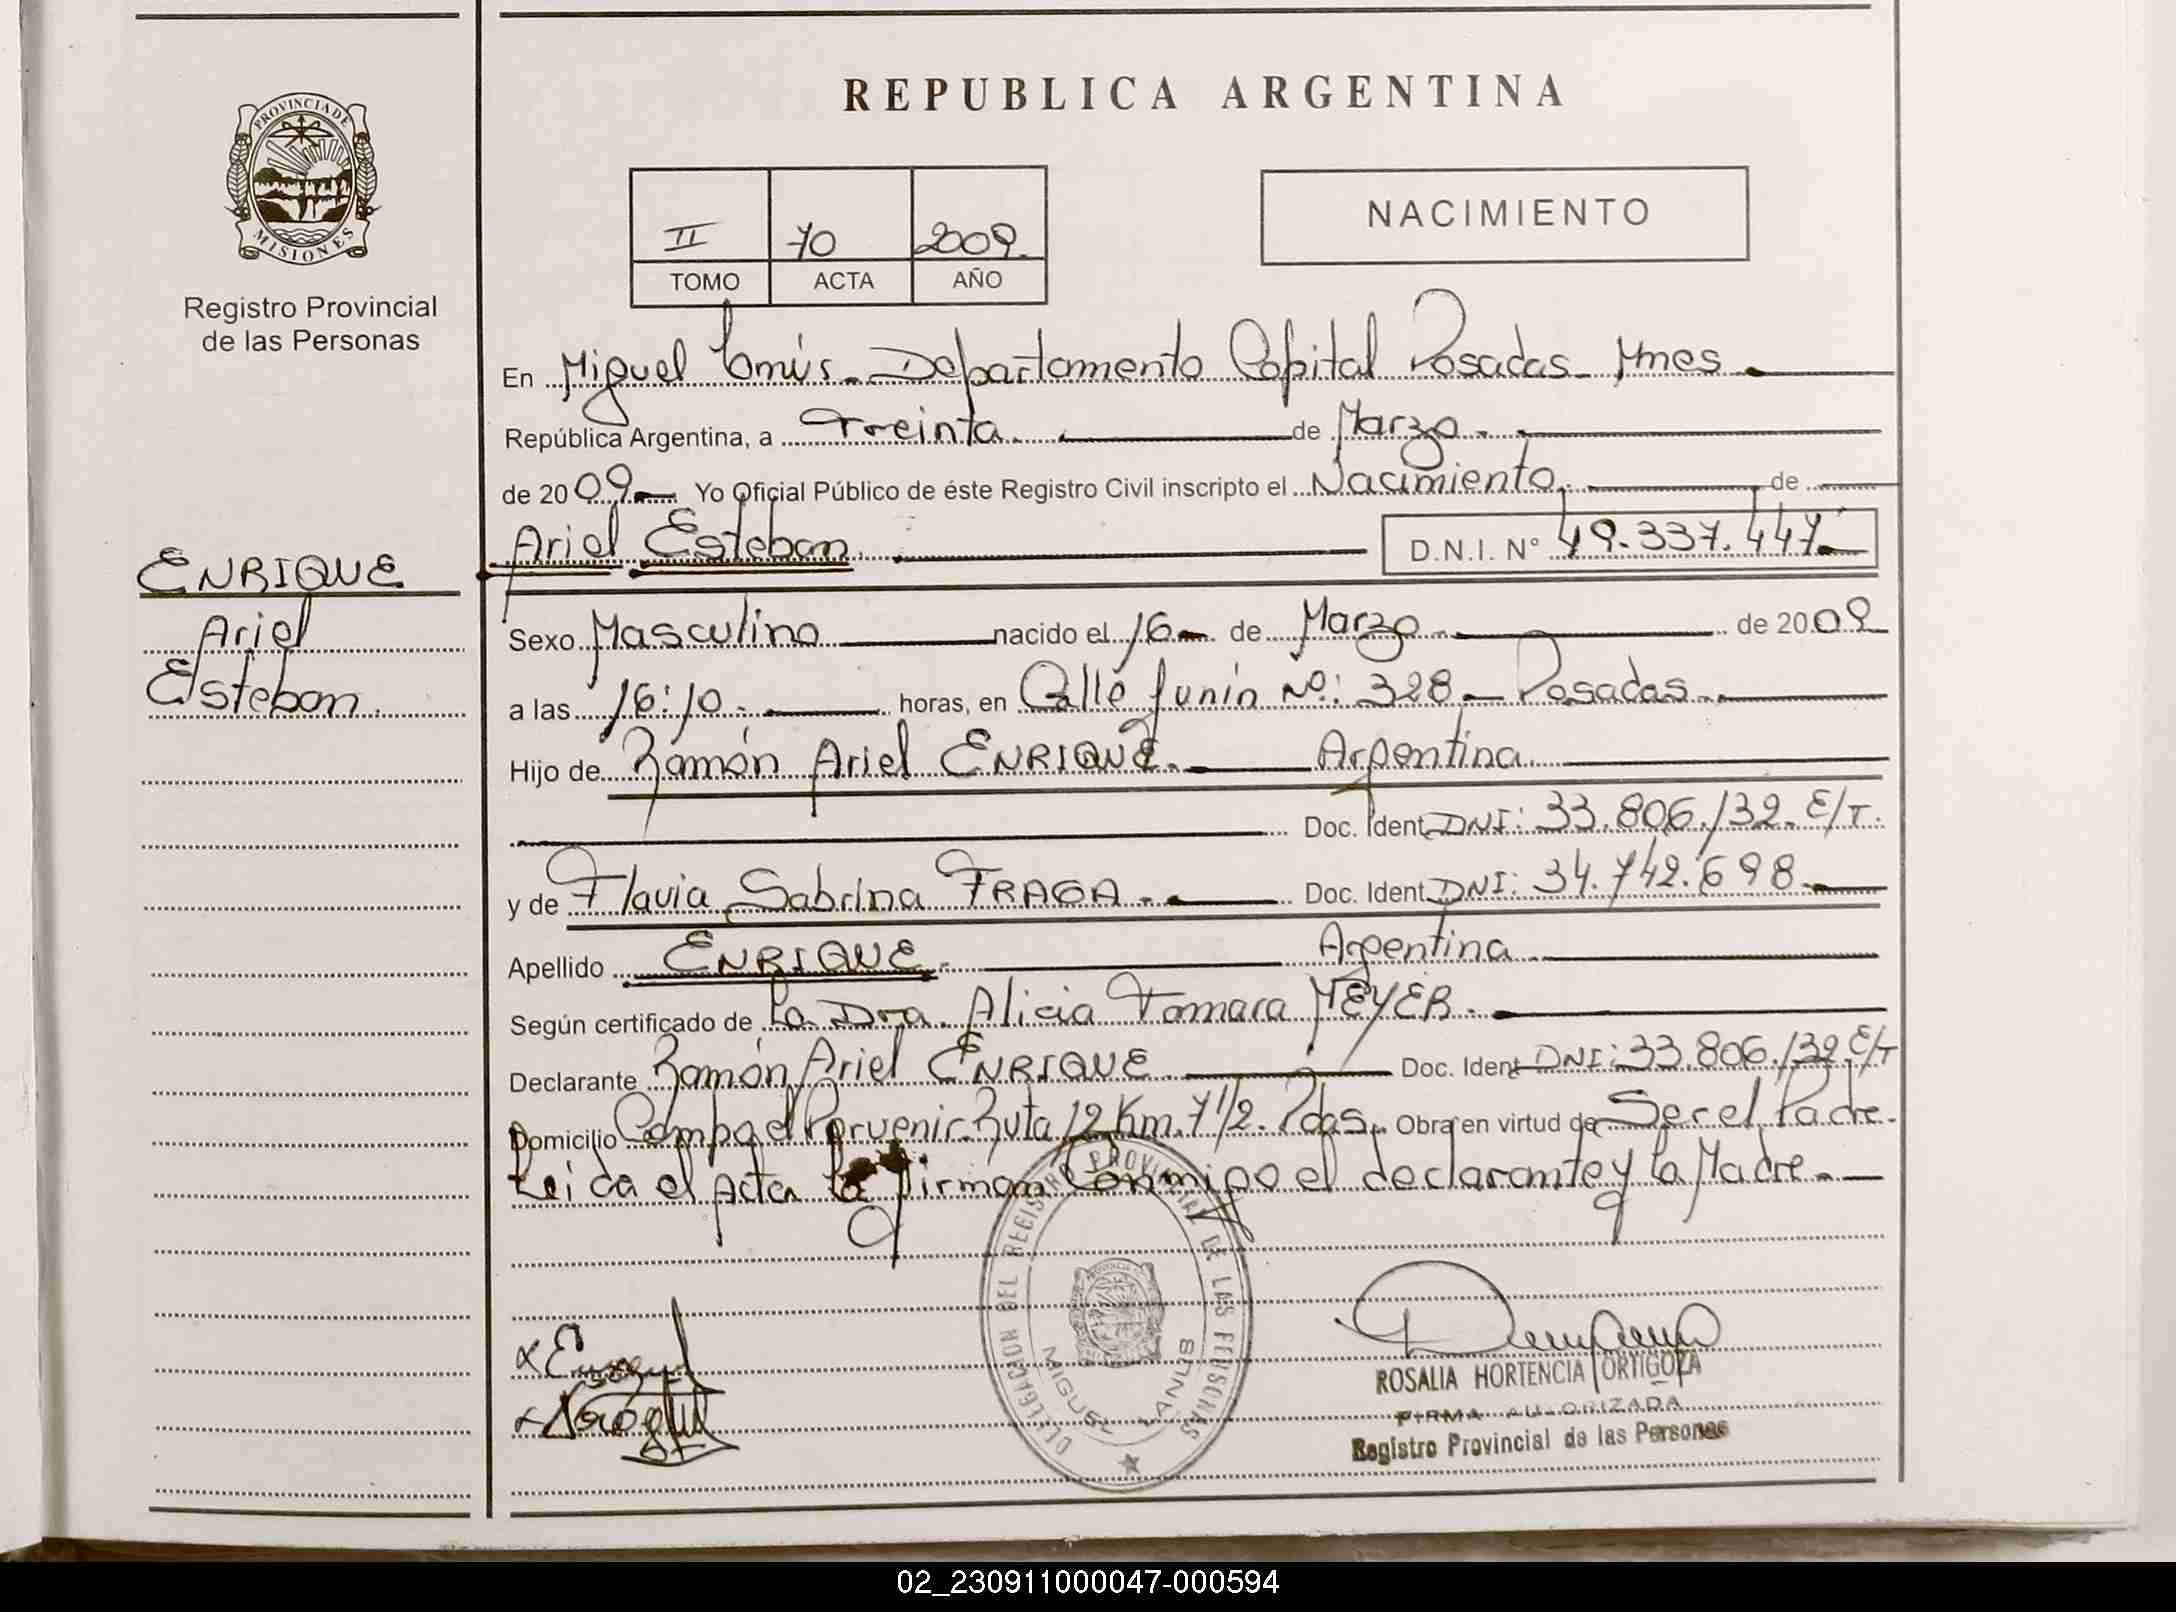 REPUBLICA ARGENTINA
PROVINCIA DE
MISIONES
Registro Provincial
de las Personas
II 70 2009.
TOMO ACTA AÑO
NACIMIENTO
En Miguel Lanús. Departamento Capital Posadas. Mnes
República Argentina, a Treinta. de Marzo.
de 2009 Yo Oficial Público de éste Registro Civil inscripto el Nacimiento. de
Ariel Esteban. D.N.I. N° 49.337.447.
ENRIQUE
Ariel
Esteban.
Sexo Masculino nacido el 16 de Marzo. de 2009
a las 16:10. horas, en Calle Junín Nº: 328. Posadas.
Hijo de Ramón Ariel ENRIQUE. Argentina.
Doc. Ident. DNI: 33.806.132. E/T.
y de Flavia Sabrina FRAGA. Doc. Ident. DNI: 34.742.698.
Apellido ENRIQUE. Argentina.
Según certificado de La Dra. Alicia Tamara MEYER.
Declarante Ramón Ariel ENRIQUE. Doc. Ident. DNI: 33.806.132. E/T
Domicilio Campo el Porvenir. Ruta 12 Km. 7 1/2. Pdas. Obra en virtud de Ser el Padre.
Leida el acta la firman Conmigo el declarante y la Madre.
DELEGACION DEL REGISTRO PROVINCIAL DE LAS PERSONAS
MIGUEL LANUS
ROSALIA HORTENCIA ORTIGOZA
FIRMA AUTORIZADA
Registro Provincial de las Personas
02_230911000047-000594